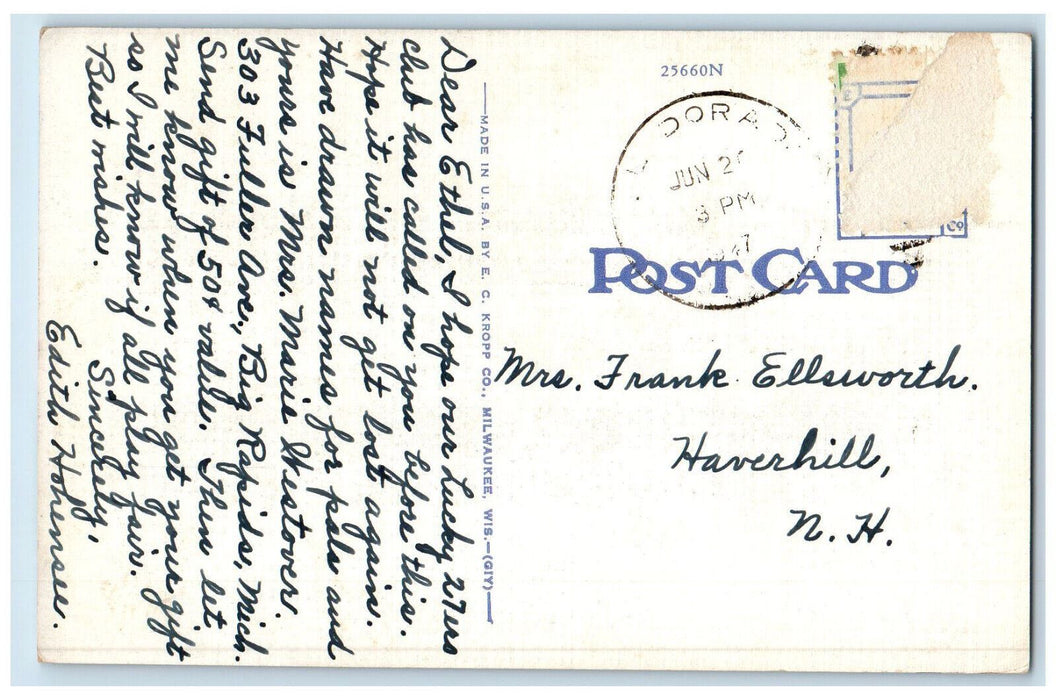 25660N
L DORAD
JUN 2
3 PM
1947
Co
POST CARD
MADE IN U.S.A. BY E. C. KROPP CO., MILWAUKEE, WIS.—(GIY)
Dear Ethel, I hope our Lucky 27ers
club has called on you before this.
Hope it will not get lost again.
Have drawn names for pals and
yours is Mrs. Marie Westover.
303 Fuller Ave., Big Rapids, Mich.
Send gift of 50¢ value. Then let
me know when you get your gift
so I will know if all play fair.
Best wishes.
Sincerely,
Edith Hohensee.
Mrs. Frank Ellsworth.
Haverhill,
N. H.